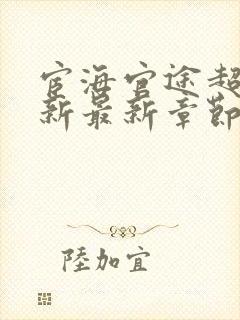 宦海官途超
新最新章節
陸加宜